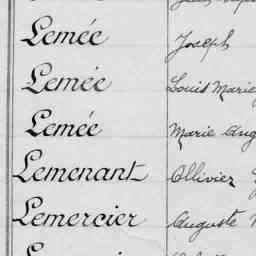 Lemée Joseph
Lemée Louis Marie
Lemée Marie Aug
Lemenant Ollivier
Lemercier Auguste